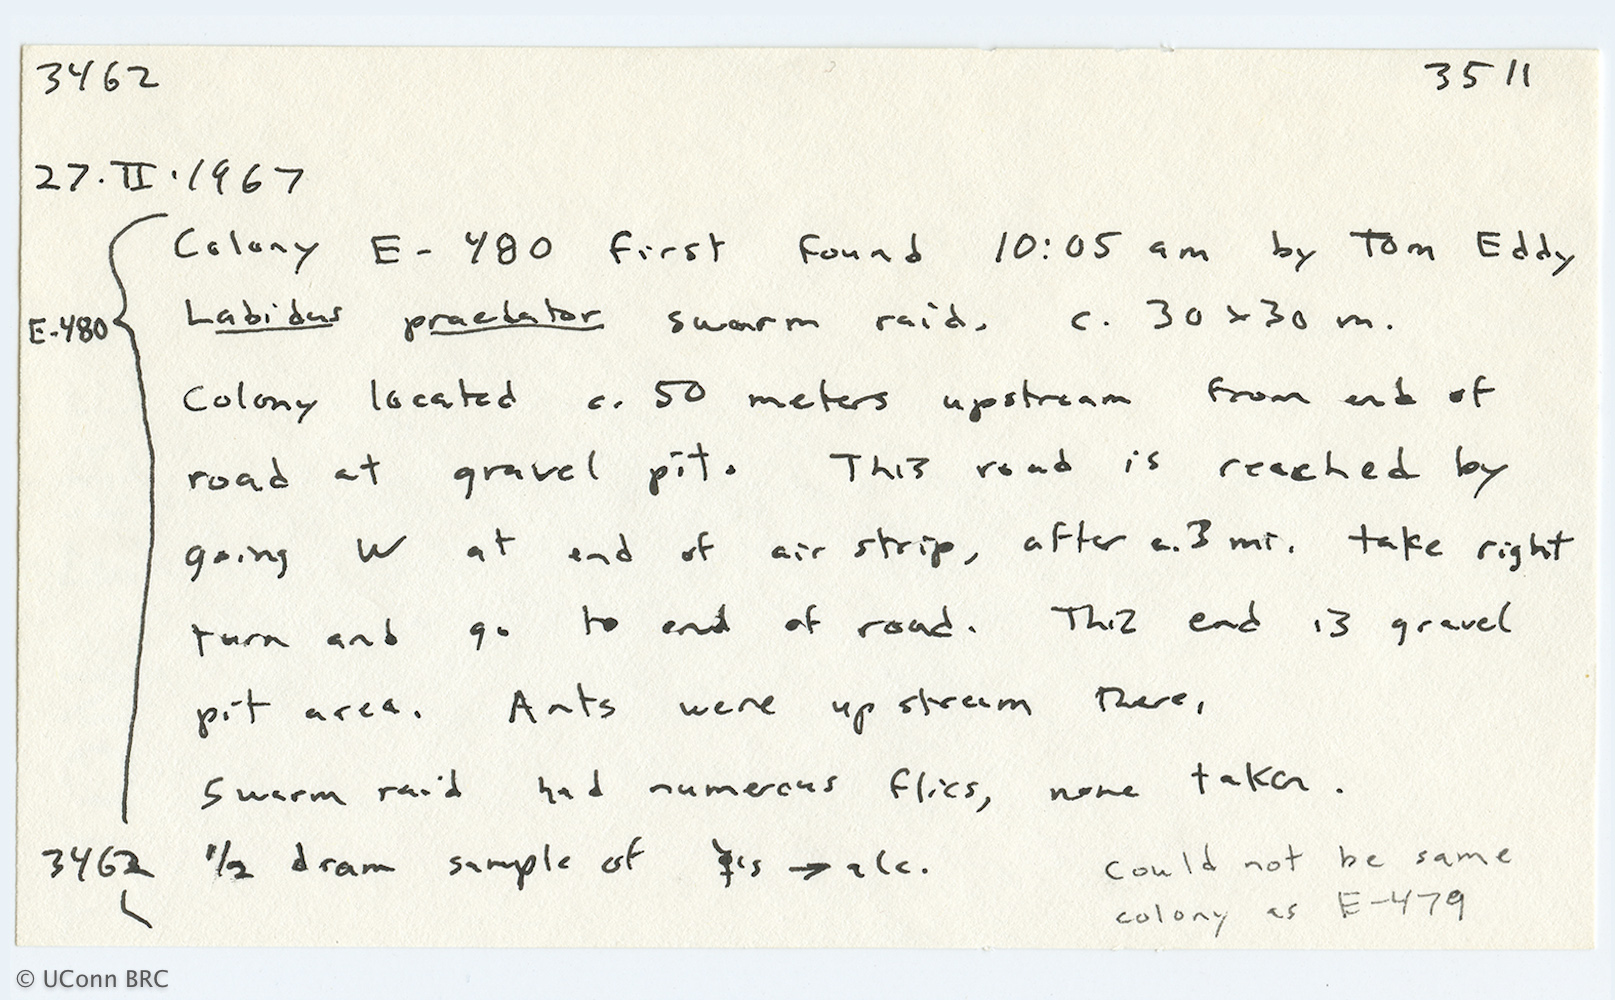 3462 3511
27.II.1967
Colony E-480 first found 10:05 am by Tom Eddy
E-480 Labidus praedator swarm raid. c. 30 x 30 m.
Colony located c. 50 meters upstream from end of
road at gravel pit. This road is reached by
going W at end of air strip, after c. 3 mi. take right
turn and go to end of road. This end is gravel
pit area. Ants were upstream there.
Swarm raid had numerous flies, none taken.
3462 1/2 dram sample of ☿'s → alc.
Could not be same
colony as E-479
© UConn BRC